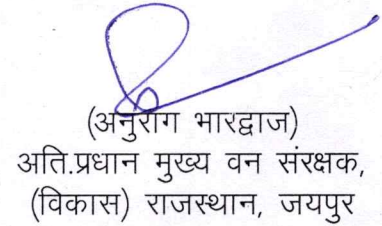 (अनुराग भारद्वाज)
अति.प्रधान मुख्य वन संरक्षक,
(विकास) राजस्थान, जयपुर